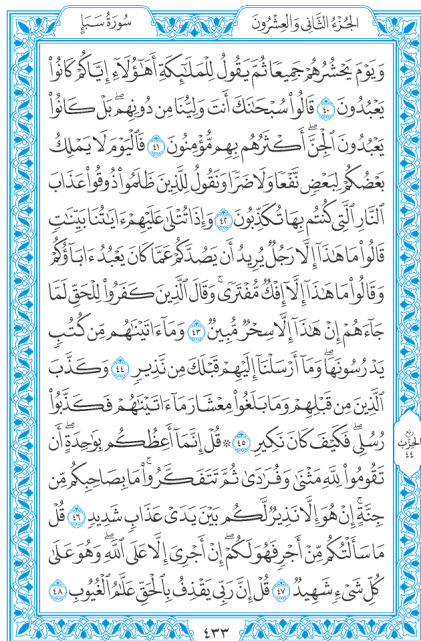 الجُزْءُ الثَّانِى وَالعِشْرُونَ
سُورَةُ سَبَإٍ
وَيَوْمَ يَحْشُرُهُمْ جَمِيعًا ثُمَّ يَقُولُ لِلْمَلَٰٓئِكَةِ أَهَٰٓؤُلَآءِ إِيَّاكُمْ كَانُوا۟
يَعْبُدُونَ ٤٠ قَالُوا۟ سُبْحَٰنَكَ أَنتَ وَلِيُّنَا مِن دُونِهِم ۖ بَلْ كَانُوا۟
يَعْبُدُونَ ٱلْجِنَّ ۖ أَكْثَرُهُم بِهِم مُّؤْمِنُونَ ٤١ فَٱلْيَوْمَ لَا يَمْلِكُ
بَعْضُكُمْ لِبَعْضٍ نَّفْعًا وَلَا ضَرًّا وَنَقُولُ لِلَّذِينَ ظَلَمُوا۟ ذُوقُوا۟ عَذَابَ
ٱلنَّارِ ٱلَّتِى كُنتُم بِهَا تُكَذِّبُونَ ٤٢ وَإِذَا تُتْلَىٰ عَلَيْهِمْ ءَايَٰتُنَا بَيِّنَٰتٍ
قَالُوا۟ مَا هَٰذَآ إِلَّا رَجُلٌ يُرِيدُ أَن يَصُدَّكُمْ عَمَّا كَانَ يَعْبُدُ ءَابَآؤُكُمْ
وَقَالُوا۟ مَا هَٰذَآ إِلَّآ إِفْكٌ مُّفْتَرًى ۚ وَقَالَ ٱلَّذِينَ كَفَرُوا۟ لِلْحَقِّ لَمَّا
جَآءَهُمْ إِنْ هَٰذَآ إِلَّا سِحْرٌ مُّبِينٌ ٤٣ وَمَآ ءَاتَيْنَٰهُم مِّن كُتُبٍ
يَدْرُسُونَهَا ۖ وَمَآ أَرْسَلْنَآ إِلَيْهِمْ قَبْلَكَ مِن نَّذِيرٍ ٤٤ وَكَذَّبَ
ٱلَّذِينَ مِن قَبْلِهِمْ وَمَا بَلَغُوا۟ مِعْشَارَ مَآ ءَاتَيْنَٰهُمْ فَكَذَّبُوا۟
رُسُلِى ۖ فَكَيْفَ كَانَ نَكِيرِ ٤٥ ۞ قُلْ إِنَّمَآ أَعِظُكُم بِوَٰحِدَةٍ ۖ أَن
تَقُومُوا۟ لِلَّهِ مَثْنَىٰ وَفُرَٰدَىٰ ثُمَّ تَتَفَكَّرُوا۟ ۚ مَا بِصَاحِبِكُم مِّن
جِنَّةٍ ۚ إِنْ هُوَ إِلَّا نَذِيرٌ لَّكُم بَيْنَ يَدَىْ عَذَابٍ شَدِيدٍ ٤٦ قُلْ
مَا سَأَلْتُكُم مِّنْ أَجْرٍ فَهُوَ لَكُمْ ۖ إِنْ أَجْرِىَ إِلَّا عَلَى ٱللَّهِ ۖ وَهُوَ عَلَىٰ
كُلِّ شَىْءٍ شَهِيدٌ ٤٧ قُلْ إِنَّ رَبِّى يَقْذِفُ بِٱلْحَقِّ عَلَّٰمُ ٱلْغُيُوبِ ٤٨
ربع
الحزب
٤٤
٤٣٣